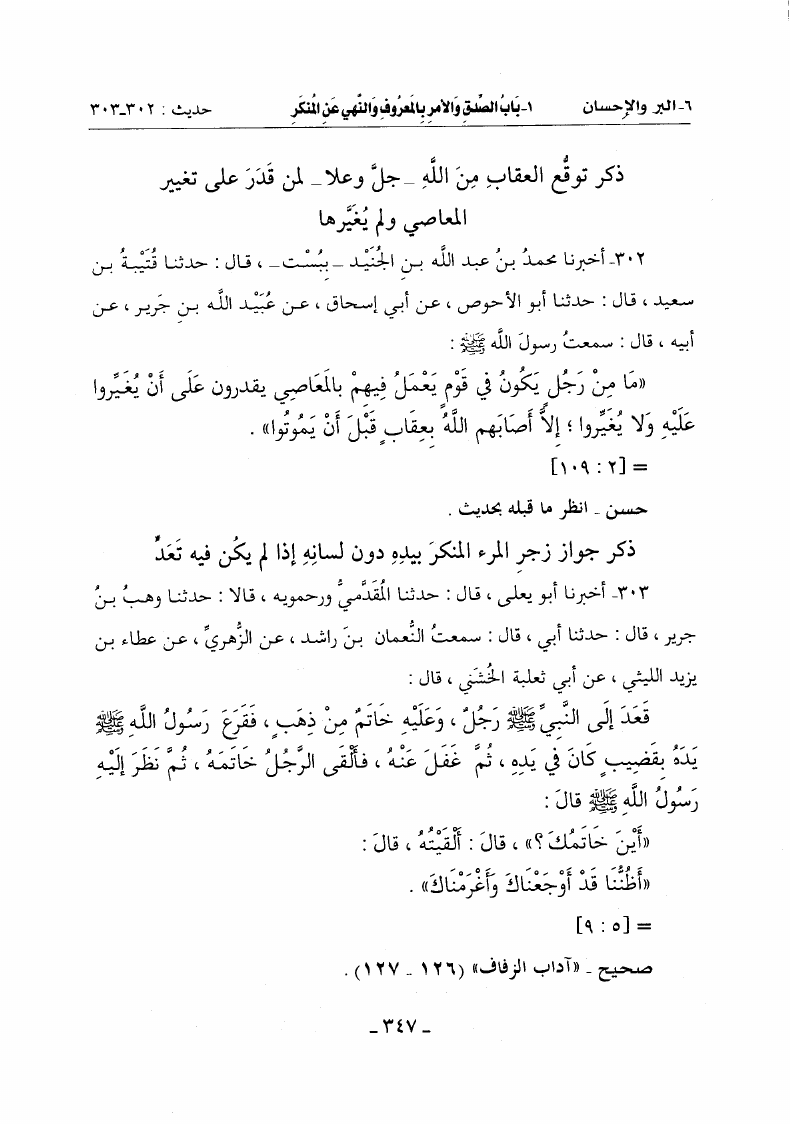 ٦- البر والإحسان ١- بَابُ الصِّدْقِ وَالأمرِ بِالمَعرُوفِ وَالنَّهي عَنِ المُنكَرِ حديث : ٣٠٢-٣٠٣
ذكر توقُّع العقابِ مِنَ اللَّهِ -جلَّ وعلا- لمن قَدَرَ على تغيير
المعاصي ولم يُغَيِّرها
٣٠٢- أخبرنا محمدُ بنُ عبد اللَّه بنِ الجُنَيْد -بِبُسْت- ، قال : حدثنا قُتَيْبةُ بن
سعيد ، قال : حدثنا أبو الأحوص ، عن أبي إسحاق ، عن عُبَيْد اللَّه بنِ جَرير ، عن
أبيه ، قال : سمعتُ رسولَ اللَّه ﷺ :
«مَا مِنْ رَجُلٍ يَكُونُ فِي قَوْمٍ يَعْمَلُ فِيهِمْ بالمَعَاصِي يقدرون عَلَى أَنْ يُغَيِّروا
عَلَيْهِ وَلا يُغَيِّروا ؛ إلاَّ أَصَابَهم اللَّهُ بِعِقَابٍ قَبْلَ أَنْ يَمُوتُوا» .
= [٢ : ١٠٩]
حسن - انظر ما قبله بحديث .
ذكر جواز زجرِ المرءِ المنكرَ بيدِهِ دون لسانِهِ إذا لم يكُن فيه تَعَدٍّ
٣٠٣- أخبرنا أبو يعلى ، قال : حدثنا المُقَدَّميُّ ورحمويه ، قالا : حدثنا وهبُ بنُ
جرير ، قال : حدثنا أبي ، قال : سمعتُ النُّعمان بنَ راشد ، عن الزُّهريِّ ، عن عطاء بن
يزيد الليثي ، عن أبي ثعلبة الخُشَني ، قال :
قَعَدَ إلى النَّبِيِّ ﷺ رَجُلٌ ، وَعَلَيْهِ خَاتَمٌ مِنْ ذَهَبٍ ، فَقَرَعَ رَسُولُ اللَّهِ ﷺ
يَدَهُ بِقَضِيبٍ كَانَ فِي يَدِهِ ، ثُمَّ غَفَلَ عَنْهُ ، فَألْقَى الرَّجُلُ خَاتَمَهُ ، ثُمَّ نَظَرَ إِلَيْهِ
رَسُولُ اللَّهِ ﷺ قالَ :
«أَيْنَ خَاتَمُكَ ؟» ، قالَ : أَلْقَيْتُهُ ، قالَ :
«أَظُنُّنَا قَدْ أَوْجَعْنَاكَ وَأَغْرَمْنَاكَ» .
= [٥ : ٩]
صحيح - «آداب الزفاف» (١٢٦ - ١٢٧) .
- ٣٤٧ -